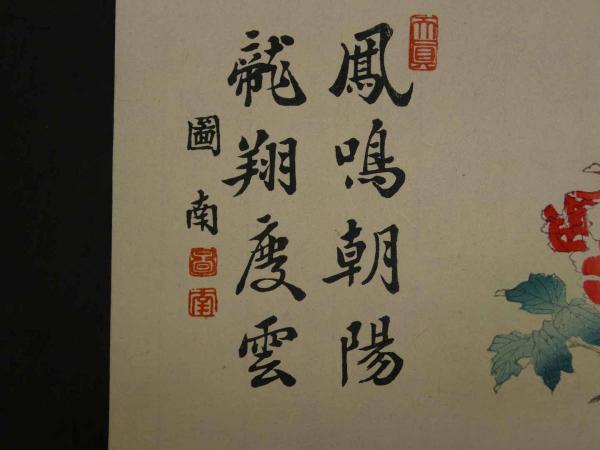 鳳鳴朝陽
龍翔度雲
圖南